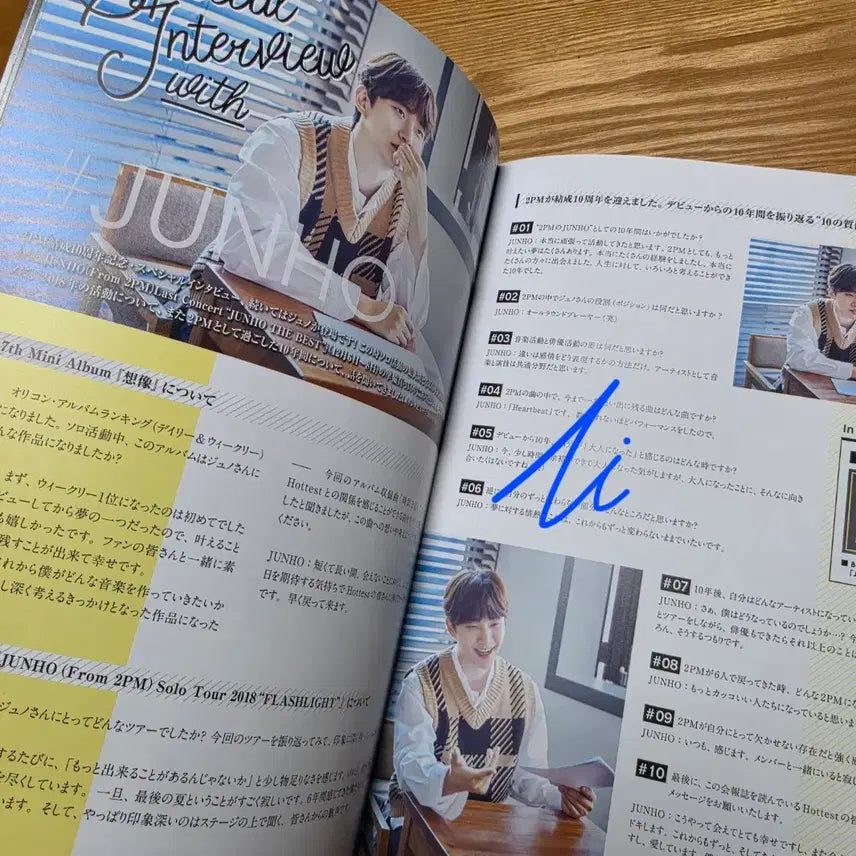 Special
Interview
with
#JUNHO
2PM結成10周年記念・スペシャルインタビュー、続いてはジュノが登場です！
JUNHO (From 2PM) Last Concert "JUNHO THE BEST"
2018年の活動について、また2PMとして過ごした10年間について、話を聞いてきました
7th Mini Album「想像」について
オリコン・アルバムランキング（デイリー＆ウィークリー）
になりました。ソロ活動中、このアルバムはジュノさんに
んな作品になりましたか？
まず、ウィークリー1位になったのは初めてでした
ビューしてから夢の一つだったので、叶えること
も嬉しかったです。ファンの皆さんと一緒に素
残すことが出来て幸せです。
れから僕がどんな音楽を作っていきたいか
し深く考えるきっかけとなった作品になった
今回のアルバム収録曲
Hottestとの関係を感じることが
したと聞きましたが、この曲への想いや
ください。
JUNHO：短くて長い間、会えないことに
日を期待する気持ちでHottestの皆さんに
です。早く戻って来ます。
JUNHO (From 2PM) Solo Tour 2018 "FLASHLIGHT"」について
ジュノさんにとってどんなツアーでしたか？今回のツアーを振り返ってみて、印象に
するたびに、「もっと出来ることがあるんじゃないか」と少し物足りなさを感じます。
を尽くしています。一旦、最後の夏ということがすごく寂しいです。6年間
います。そして、やっぱり印象深いのはステージの上で聞く、皆さんからの歓声
2PMが結成10周年を迎えました。デビューからの10年間を振り返る"10の質
#01 "2PMのJUNHO"としての10年間はいかがでしたか？
JUNHO：本当に頑張って活動してきたと思います。2PMとしても、もっと
叶えたい夢はたくさんあります。本当にたくさんの経験をしましたし、本当に
たくさんの方々に出会えました。人生に対して、いろいろと考えることができ
た10年でした。
#02 2PMの中でジュノさんの役割（ポジション）は何だと思いますか？
JUNHO：オールラウンドプレーヤー（笑）
#03 音楽活動と俳優活動の差は何だと思いますか？
JUNHO：違いは感情をどう表現するかの方法だけ。アーティストとして音
楽と演技は共通分野だと思います。
#04 2PMの曲の中で、今まで一番思い出に残る曲はどんな曲ですか？
JUNHO：「Heartbeat」です。数えきれないほどパフォーマンスをしたので。
#05 デビューから10年、「大人になった」と感じるのはどんな時ですか？
JUNHO：今。少し時間 大人になった気がしますが、大人になったことに、そんなに向き
合いたくはないですね
#06 逆に、自分のずっと変わらない部分はどんなところだと思いますか？
JUNHO：夢に対する情熱 これからもずっと変わらないままでいたいです。
li
#07 10年後、自分はどんなアーティストになってい
JUNHO：さぁ、僕はどうなっているのでしょうか…？今
とツアーをしながら、俳優もできたらそれ以上のことは
ろん、そうするつもりです。
#08 2PMが6人で戻ってきた時、どんな2PMにな
JUNHO：もっとカッコいい人たちになっていると思いま
#09 2PMが自分にとって欠かせない存在だと強く感
JUNHO：いつも、感じます。メンバーと一緒にいると寂し
#10 最後に、この会報誌を読んでいるHottestの皆
メッセージをお願いいたします。
JUNHO：こうやって会えてとても幸せですし、また会
ドキします。これからもずっと、そして
すし、愛しています。
in